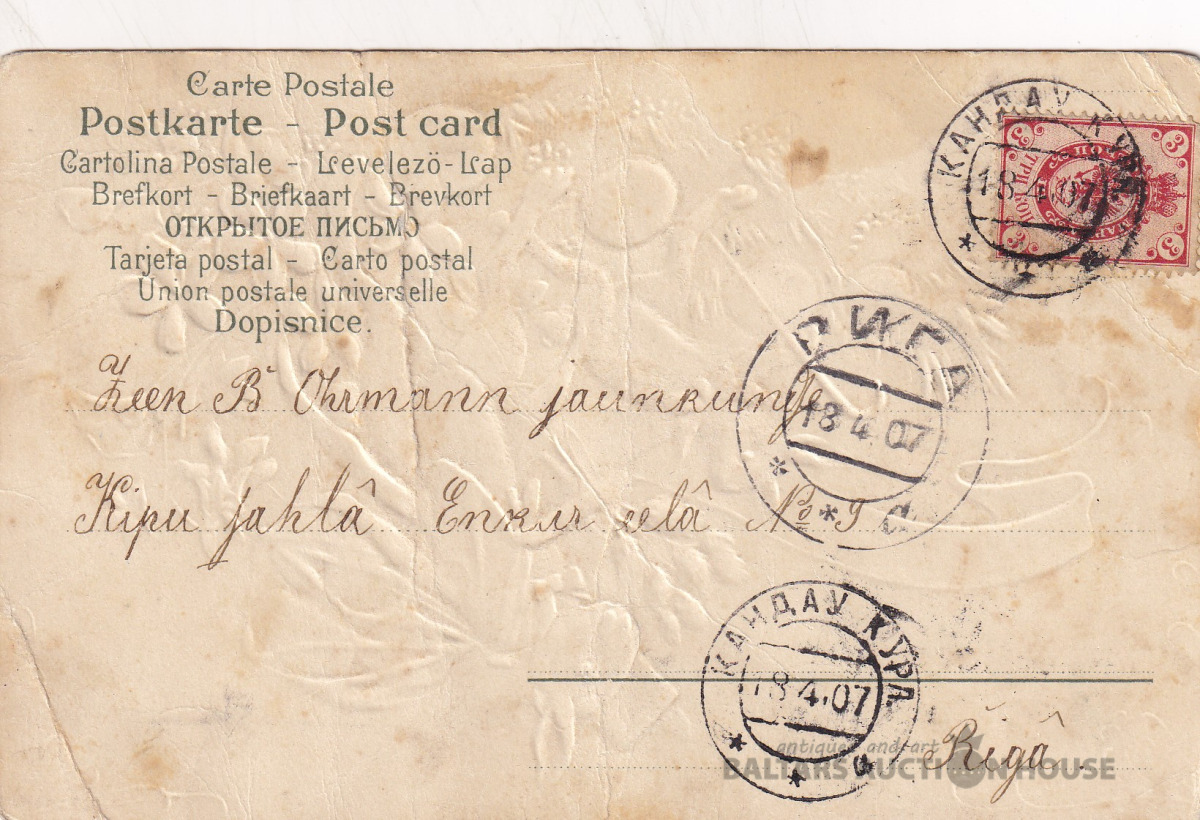 Carte Postale
Postkarte - Post card
Cartolina Postale - Levelezö-Lap
Brefkort - Briefkaart - Brevkort
ОТКРЫТОЕ ПИСЬМО
Tarjeta postal - Carto postal
Union postale universelle
Dopisnice.
КАНДАУ КУРЛ
18 4 07
3 3
3 3
РИГА
18 4 07
C
Zeen B Ohrmann jaunkundze
Kipu jahlâ Enkur eelâ № 9
КАНДАУ КУРЛ
18 4 07
Rīgâ.
antiques and art
BALTARS AUCTION HOUSE